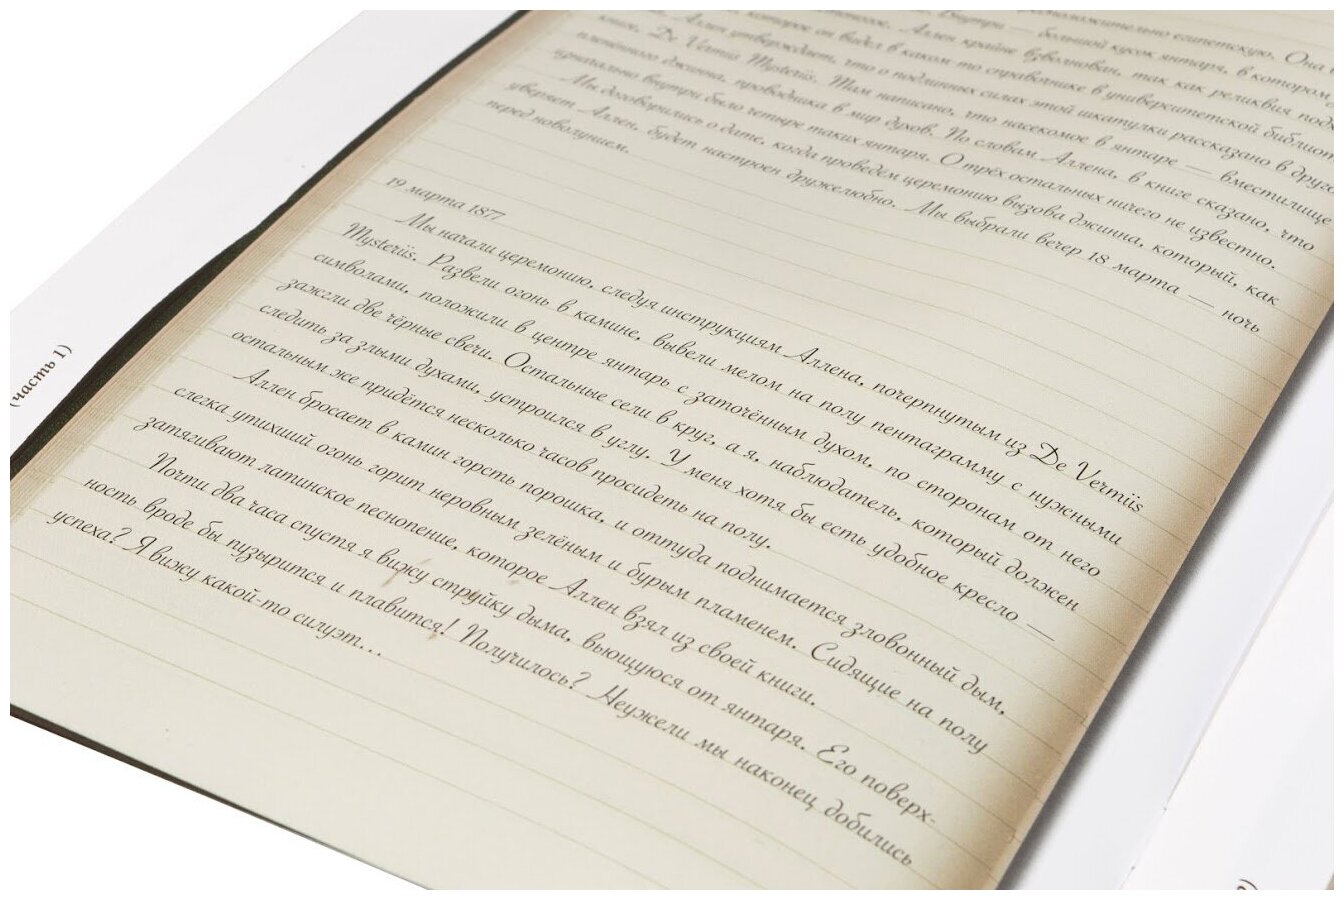 предположительно египетскую. Она
Внутри — большой кусок янтаря, в котором
которое он видел в каком-то справочнике в университетской библиот
Аллен крайне взволнован, так как реликвия подх
Аллен утверждает, что о подлинных силах этой шкатулки рассказано в друго
книге, De Vermiis Mysteriis. Там написано, что насекомое в янтаре — вместилище
пленённого джинна, проводника в мир духов. По словам Аллена, в книге сказано, что
изначально внутри было четыре таких янтаря. О трёх остальных ничего не известно.
Мы договорились о дате, когда проведём церемонию вызова джинна, который, как
уверяет Аллен, будет настроен дружелюбно. Мы выбрали вечер 18 марта — ночь
перед новолунием.
19 марта 1877
Мы начали церемонию, следуя инструкциям Аллена, почерпнутым из De Vermiis
Mysteriis. Развели огонь в камине, вывели мелом на полу пентаграмму с нужными
символами, положили в центре янтарь с заточённым духом, по сторонам от него
зажгли две чёрные свечи. Остальные сели в круг, а я, наблюдатель, который должен
следить за злыми духами, устроился в углу. У меня хотя бы есть удобное кресло —
остальным же придётся несколько часов просидеть на полу.
Аллен бросает в камин горсть порошка, и оттуда поднимается зловонный дым,
слегка утихший огонь горит неровным зелёным и бурым пламенем. Сидящие на полу
затягивают латинское песнопение, которое Аллен взял из своей книги.
Почти два часа спустя я вижу струйку дыма, вьющуюся от янтаря. Его поверх-
ность вроде бы пузырится и плавится! Получилось? Неужели мы наконец добились
успеха? Я вижу какой-то силуэт...
(часть 1)